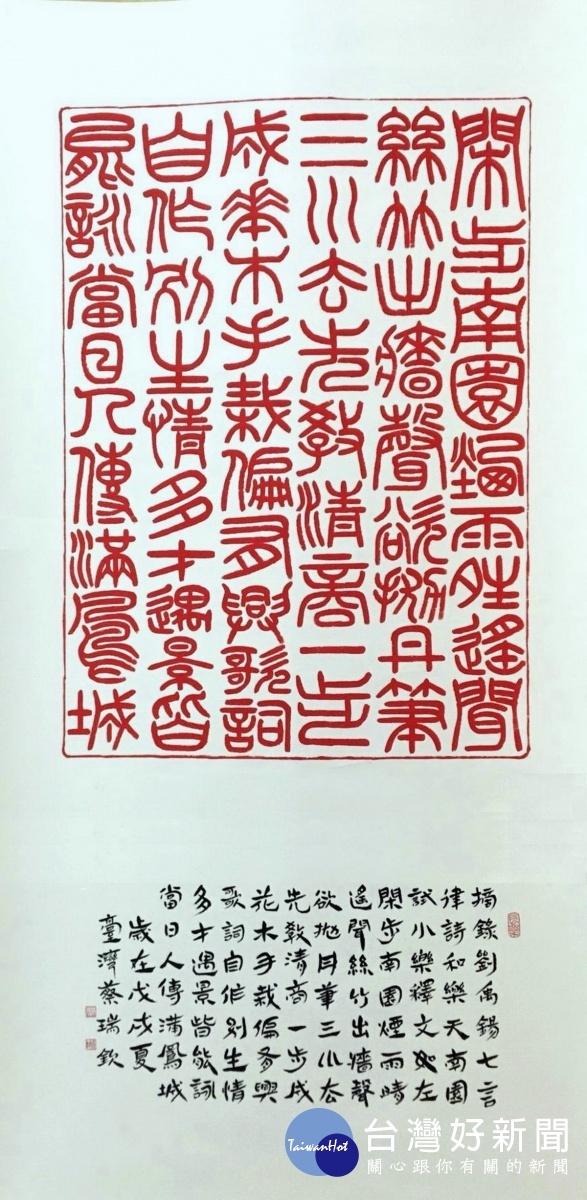 閑步南園煙雨晴遙聞
絲竹出牆聲欲拋丹筆
三川去先教清商一步
成花木手栽偏有興歌詞
自作別生情多才遇景皆
能詠當日人傳滿鳳城
摘錄劉禹錫七言
律詩和樂天南園
試小樂釋文如左
閑步南園煙雨晴
遙聞絲竹出牆聲
欲拋丹筆三川去
先教清商一步成
花木手栽偏有興
歌詞自作別生情
多才遇景皆能詠
當日人傳滿鳳城
歲在戊戌夏
臺灣蔡瑞欽
TaiwanHot
台灣好新聞
關心跟你有關的新聞